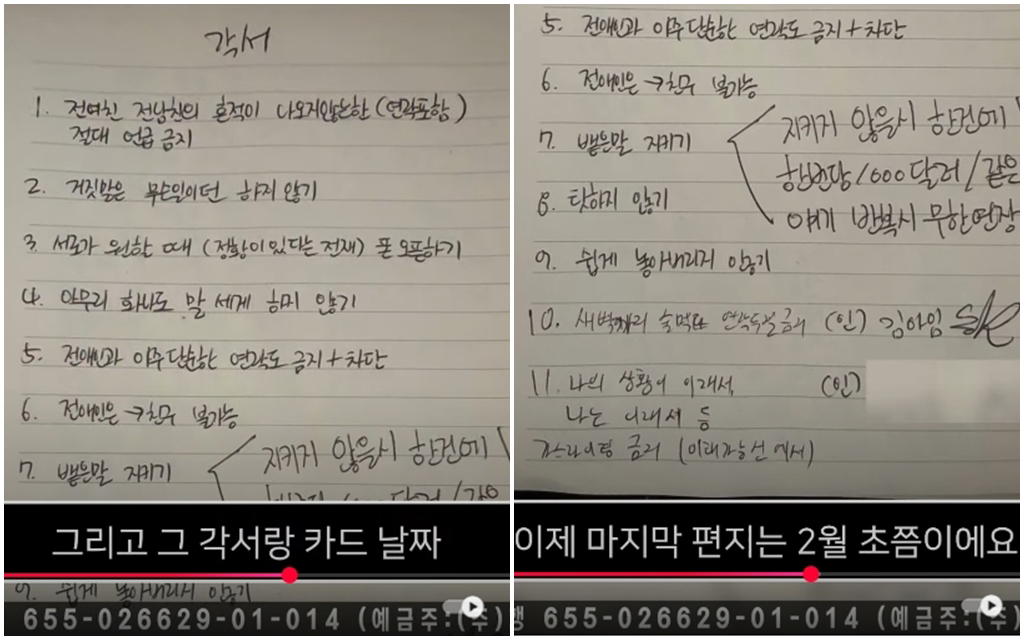 각서
1. 전여친 전남친의 흔적이 나오지않는한 (연락포함)
절대 언급 금지
2. 거짓말은 무슨일이던 하지 않기
3. 서로가 원할때 (정황이 있다는 전재) 폰 오픈하기
4. 아무리 화나도 말 세게 하지 않기
5. 전애인과 아주 단순한 연락도 금지 + 차단
6. 전애인은 → 친구 불가능
7. 뱉은말 지키기
지키지 않을시 한건에
그리고 그 각서랑 카드 날짜
9. 쉽게 놓아버리지 않기
655-026629-01-014 (예금주:(주)
5. 전애인과 아주 단순한 연락도 금지 + 차단
6. 전애인은 → 친구 불가능
7. 뱉은말 지키기
지키지 않을시 한건에
한번당 1000달러 / 같은
얘기 반복시 무한연장
8. 탓하지 않기
9. 쉽게 놓아버리지 않기
10. 새벽 술먹고 (인) 김아임
11. 나의 상황이 이래서 (인)
나는 이래서 등
금지
이제 마지막 편지는 2월 초쯤이에요
행 655-026629-01-014 (예금주:(주)